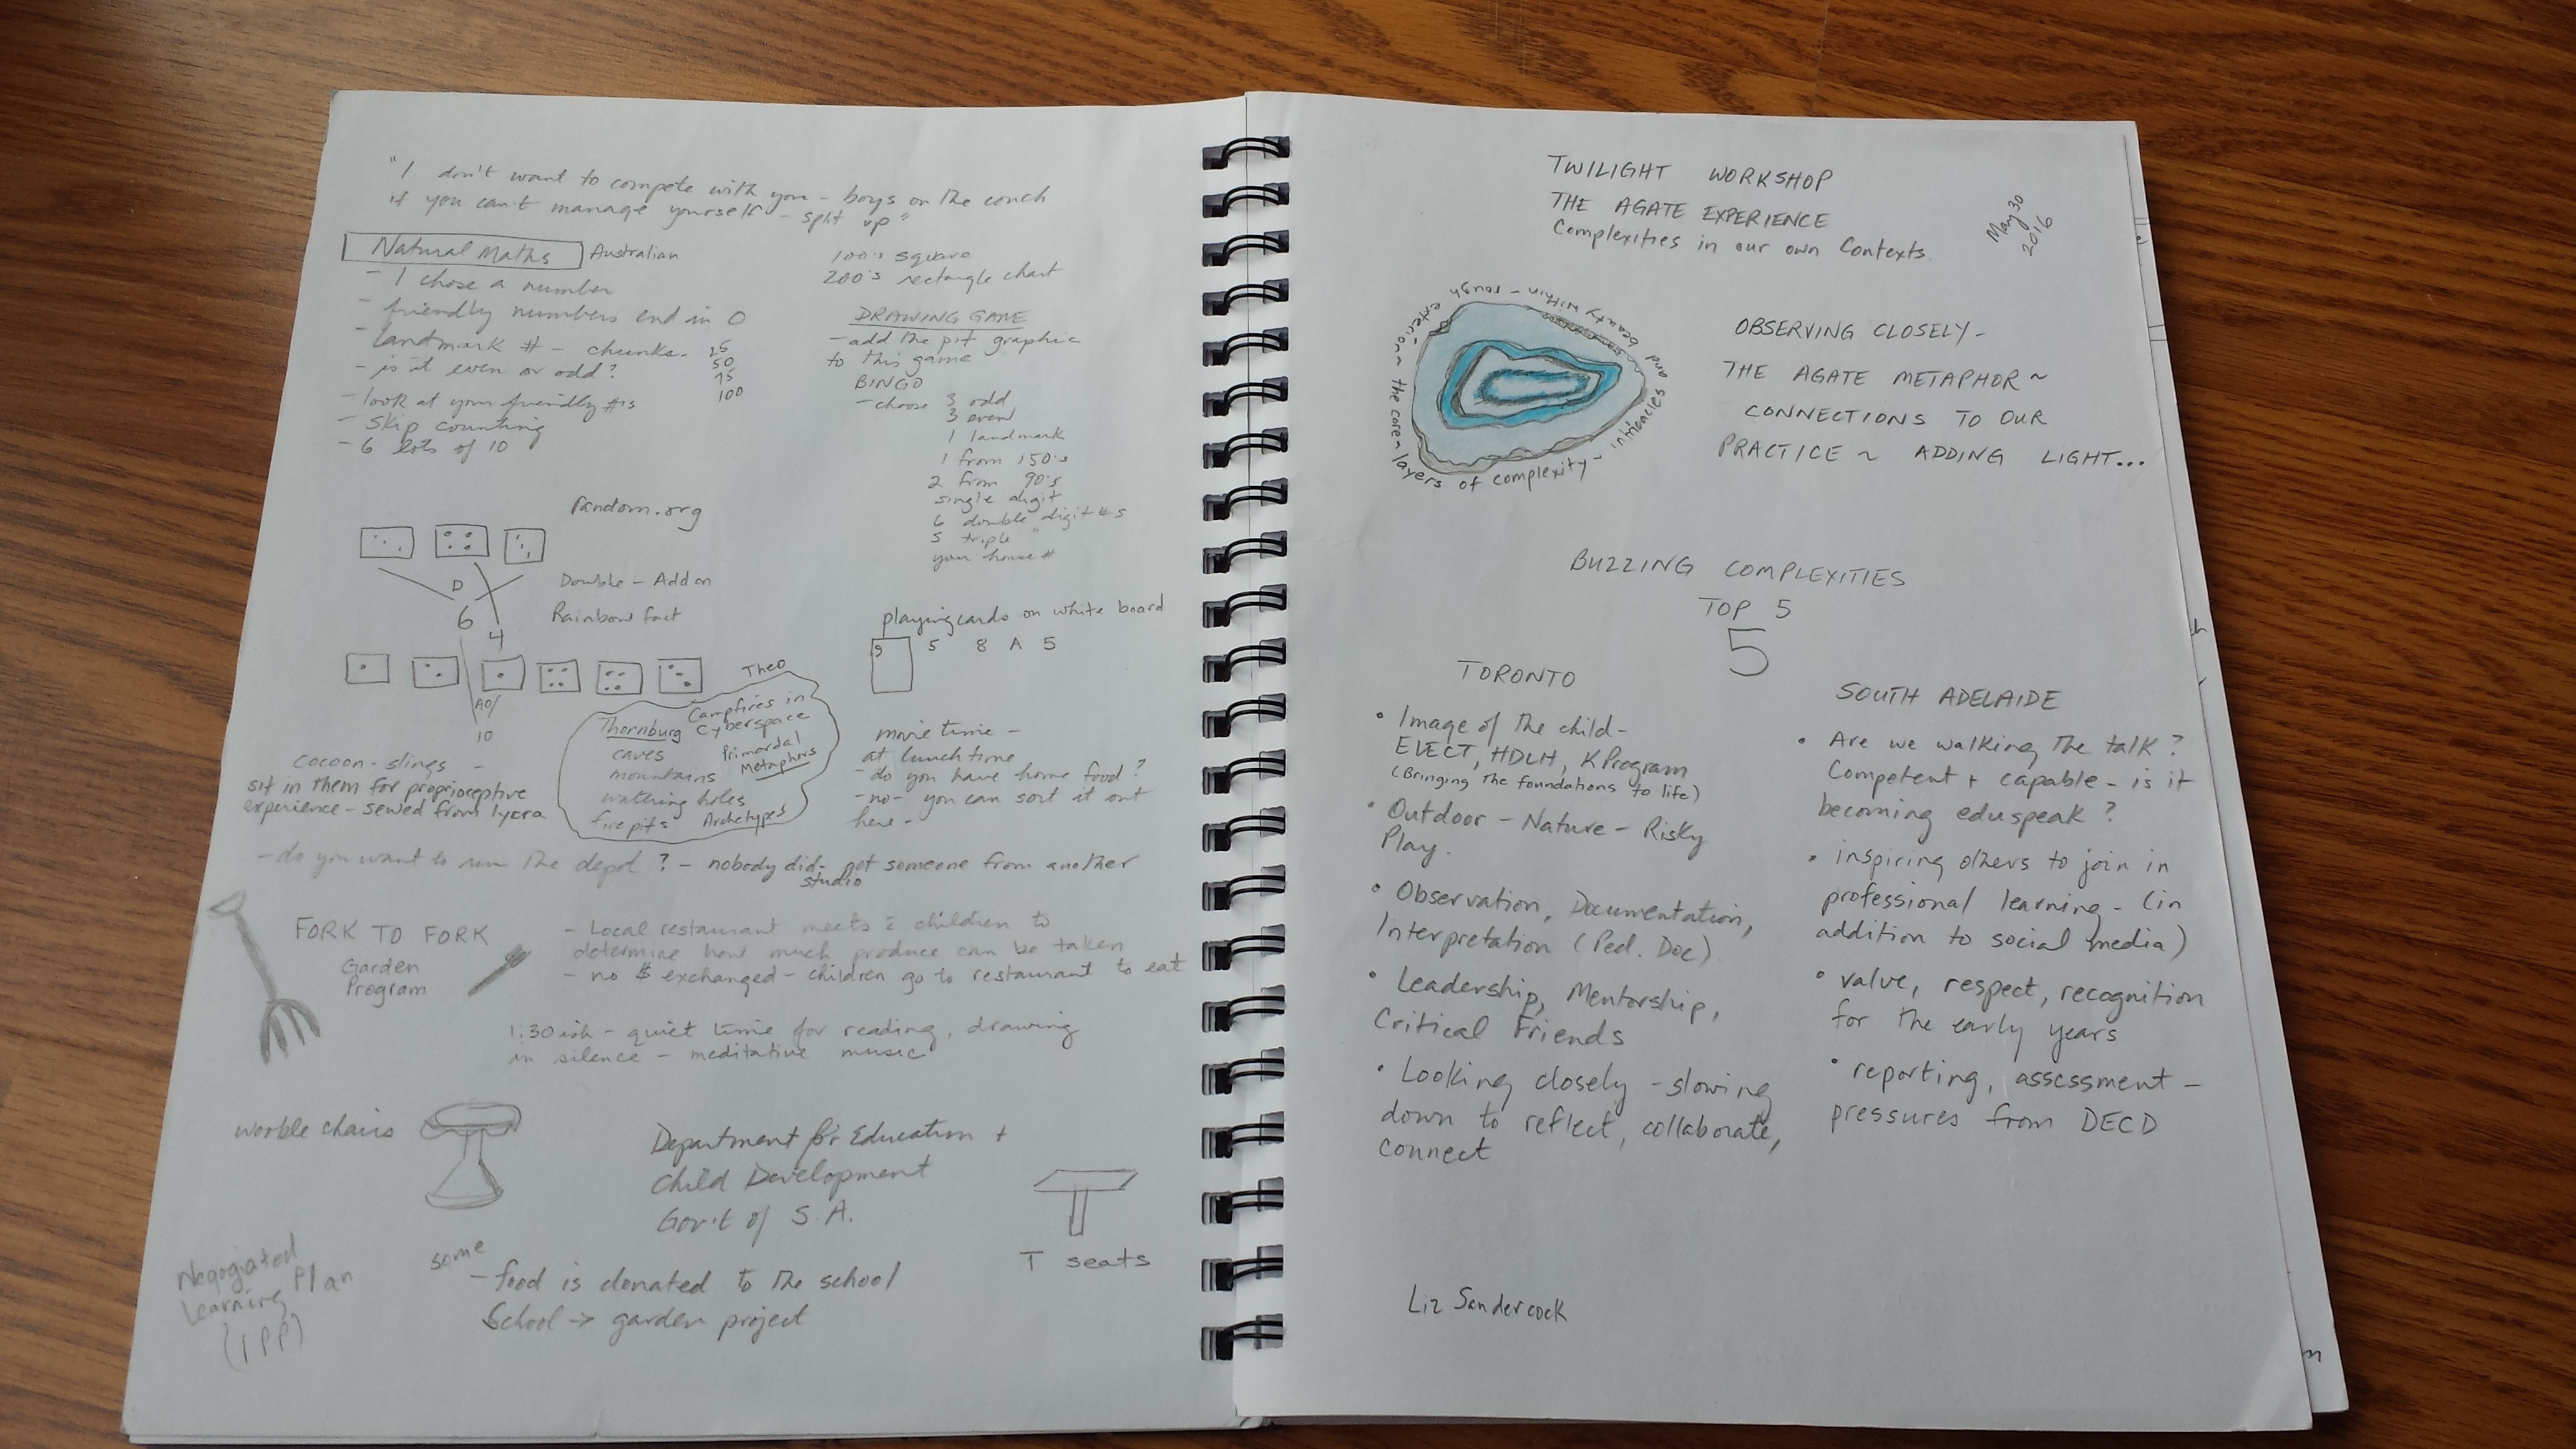 "I don't want to compete with you - boys on the couch
if you can't manage yourself - split up"
Natural Maths
Australian
- I chose a number
- friendly numbers end in 0
- landmark # - chunks. 25
50
75
100
- is it even or odd?
- look at your friendly #'s
- Skip counting
- 6 lots of 10
100's square
200's rectangle chart
DRAWING GAME
- add the pit graphic
to this game
BINGO
- choose 3 odd
3 even
1 landmark
1 from 150's
2 from 90's
single digit
6 double digit #s
5 triple "
your house #
random.org
D
6
4
Double - Add on
Rainbow fact
AO/
10
playing cards on white board
9 5 8 A 5
Theo
Thornburg
Campfires in
Cyberspace
caves
mountains
watering holes
fire pits
Primordal
Metaphors
Archetypes
cocoon - slings -
sit in them for proprioceptive
experience - sewed from lycra
movie time -
at lunch time
- do you have home food?
- no - you can sort it out
here -
- do you want to run the depot? - nobody did - get someone from another
studio
FORK TO FORK
Garden
Program
- Local restaurant meets c children to
determine how much produce can be taken
- no $ exchanged - children go to restaurant to eat
1:30ish - quiet time for reading, drawing
in silence - meditative music
wobble chairs
Department for Education +
Child Development
Gov't of S.A.
T seats
Negogiated
Learning Plan
(IPP)
some
- food is donated to the school
School → garden project
TWILIGHT WORKSHOP
THE AGATE EXPERIENCE
Complexities in our own Contexts.
May 30
2016
rough exterior ~ the core ~ layers of complexity ~ intricacies and beauty within -
OBSERVING CLOSELY -
THE AGATE METAPHOR ~
CONNECTIONS TO OUR
PRACTICE ~ ADDING LIGHT...
BUZZING COMPLEXITIES
TOP 5
5
TORONTO
• Image of the child -
ELECT, HDLH, K Program
(Bringing the foundations to life)
• Outdoor - Nature - Risky
Play.
• Observation, Documentation,
Interpretation (Ped. Doc).
• Leadership, Mentorship,
Critical Friends
• Looking closely - slowing
down to reflect, collaborate,
connect
SOUTH ADELAIDE
• Are we walking the talk?
Competent + capable - is it
becoming eduspeak?
• inspiring others to join in
professional learning - (in
addition to social media)
• value, respect, recognition
for the early years
• reporting, assessment -
pressures from DECD
Liz Sandercock